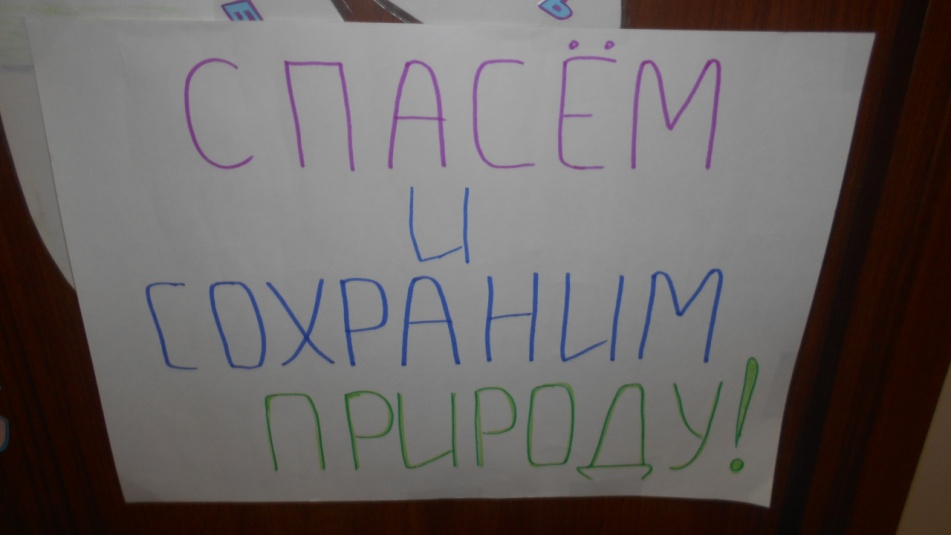 СПАСЁМ
И
СОХРАНИМ
ПРИРОДУ!